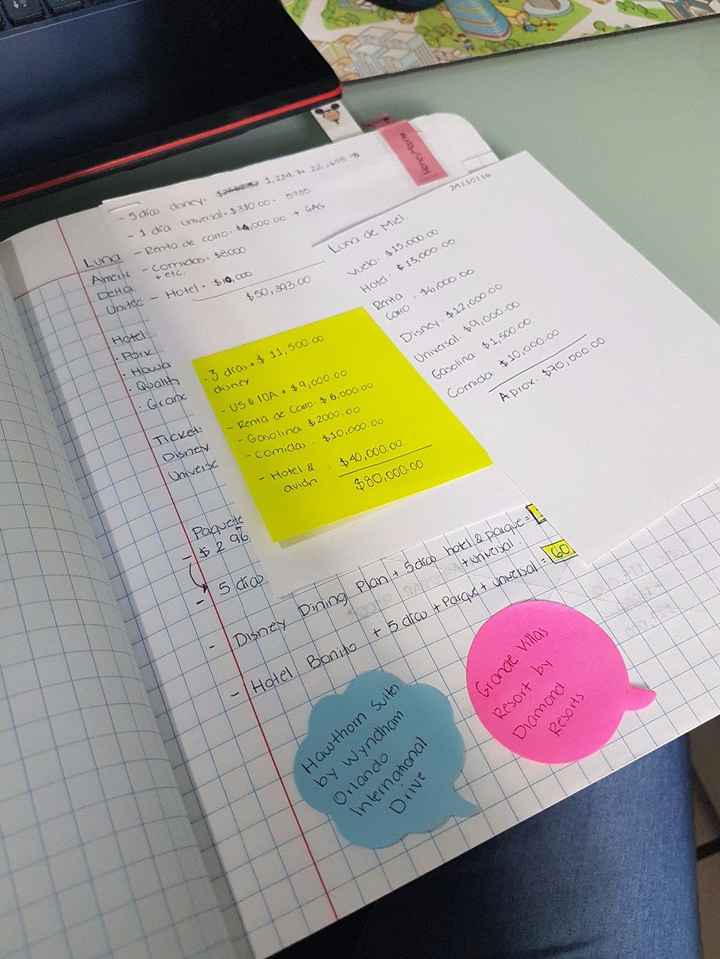 Honeymoon
- 5 días disney.
- 1 día universal.
- Renta de carro. $4,000.00 + GAS
- Comidas. $8000
+ etc.
- Hotel. $10,000
$50,393.00
Luna de Miel
Vuelo. $15,000.00
Hotel. $13,000.00
Renta
carro . $6,000.00
Disney. $12,000.00
Universal. $9,000.00
Gasolina $1,500.00
Comida. $10,000.00
Aprox. $70,000.00
- 3 días. $11,500.00
disney
- US & IOA. $9,000.00
- Renta de Carro $8,000.00
- Gasolina $2000.00
- Comidas. $10,000.00
- Hotel &
avión . $40,000.00
$80,000.00
Luna
Hotel
Disney
- $ 2 96
- 5 días
- Disney Dining Plan + 5 días hotel & parque =
+ universal
- Hotel Bonito + 5 días + Parque + universal = 60
Hawthorn Suites
by Wyndham
Orlando
International
Drive
Grande Villas
Resort by
Diamond
Resorts